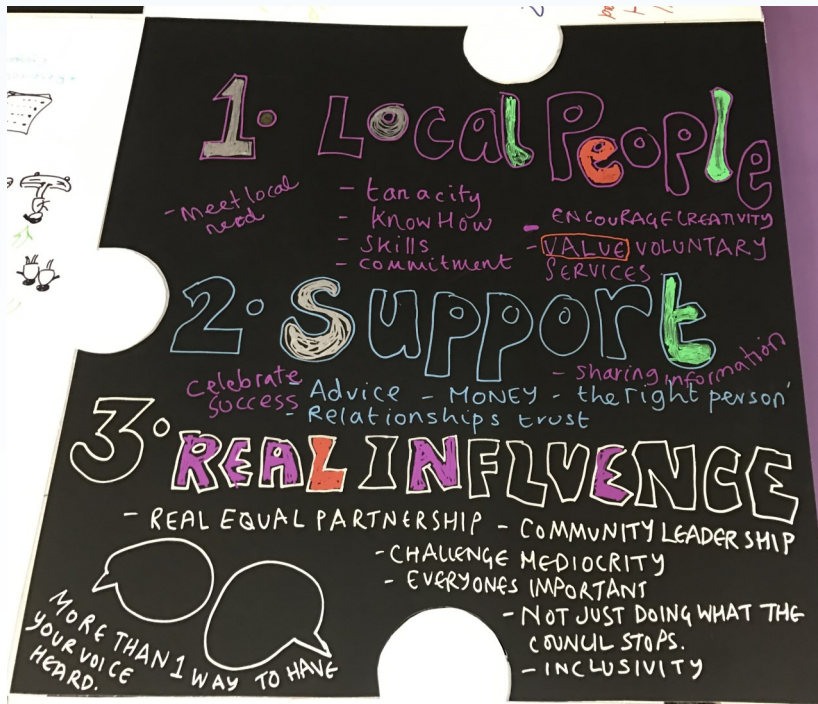 1. Local People
- Meet local
need
- tanacity
- Know How
- Skills
- commitment
- ENCOURAGE CREATIVITY
- VALUE VOLUNTARY
SERVICES
2. Support
Celebrate
Success
- sharing information
- Advice - MONEY - the right person'
- Relationships trust
3. REAL INFLUENCE
- REAL EQUAL PARTNERSHIP - COMMUNITY LEADERSHIP
- CHALLENGE MEDIOCRITY
- EVERYONES IMPORTANT
- NOT JUST DOING WHAT THE
COUNCIL STOPS.
- INCLUSIVITY
MORE THAN 1 WAY TO HAVE
YOUR VOICE
HEARD.